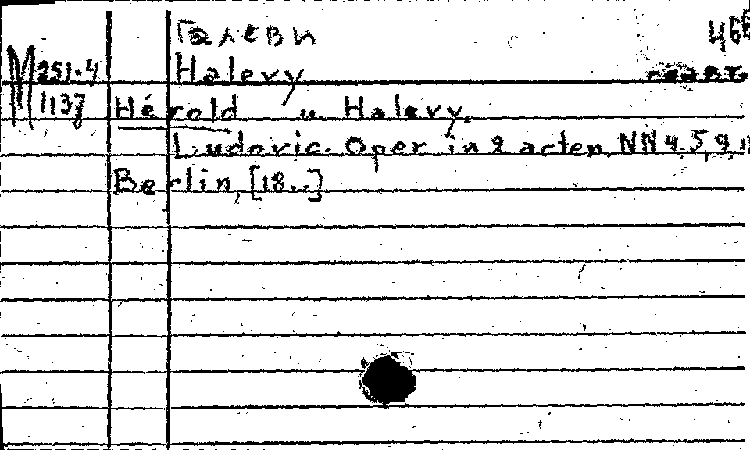 Галеви 466
M 251.4 Halevy
1137 Hérold u. Halevy.
Ludovic. Oper in 2 acten. NN 4, 5, 9, 11
Berlin, [18..]